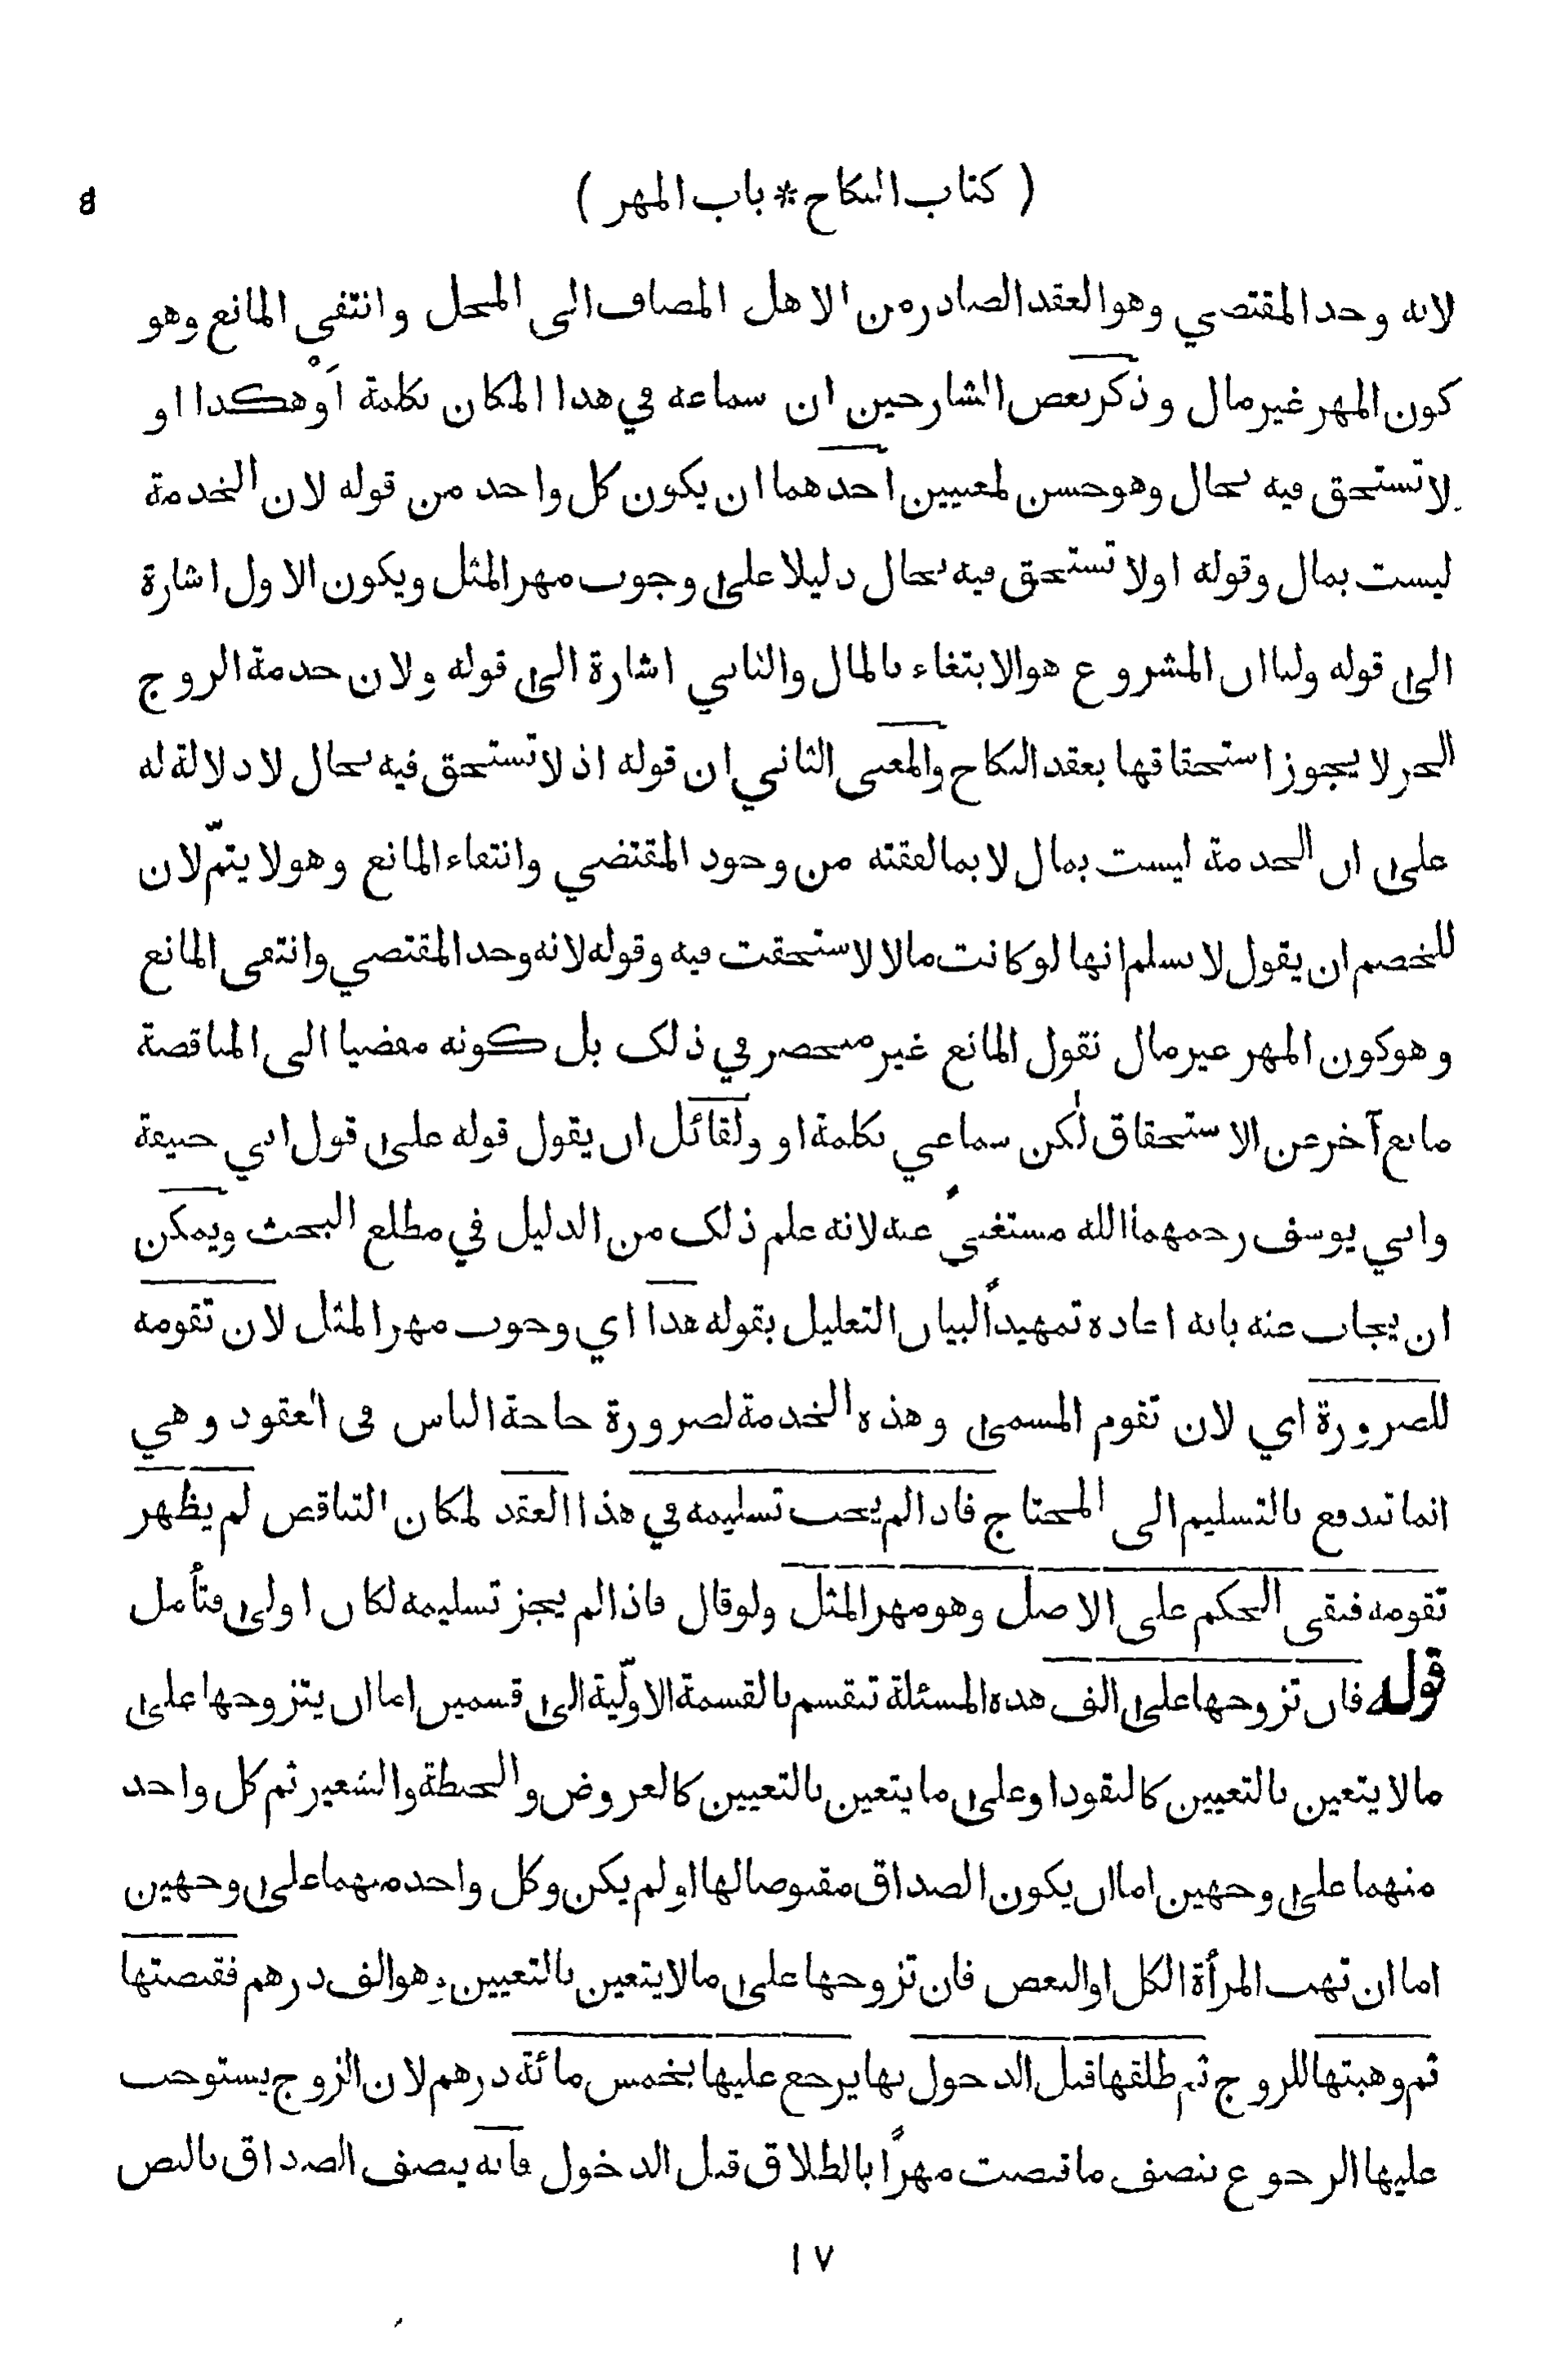 ( كتاب النكاح * باب المهر )
لانه وجد المقتضي وهو العقد الصادر من الاهل المضاف الى المحل وانتفى المانع وهو
كون المهر غير مال وذكر بعض الشارحين ان سماعه في هذا المكان بكلمة أوْ هكذا او
لا تستحق فيه بحال وهو حسن لمعنيين احدهما ان يكون كل واحد من قوله لان الخدمة
ليست بمال وقوله اولا تستحق فيه بحال دليلا على وجوب مهر المثل ويكون الاول اشارة
الى قوله ولنا ان المشروع هو الابتغاء بالمال والثاني اشارة الى قوله ولان خدمة الزوج
الحر لا يجوز استحقاقها بعقد النكاح والمعنى الثاني ان قوله اذ لا تستحق فيه بحال لا دلالة له
على ان الخدمة ليست بمال لا بما لفقته من وجود المقتضي وانتفاء المانع وهو لا يتمّ لان
للخصم ان يقول لا نسلم انها لو كانت مالا لاستحقت فيه وقوله لانه وجد المقتضي وانتفى المانع
وهو كون المهر غير مال نقول المانع غير منحصر في ذلك بل كونه مفضيا الى المناقضة
مانع آخر عن الاستحقاق لكن سماعي بكلمة او ولقائل ان يقول قوله على قول ابي حنيفة
وابي يوسف رحمهما الله مستغنىً عنه لانه علم ذلك من الدليل في مطلع البحث ويمكن
ان يجاب عنه بانه اعاده تمهيداً لبيان التعليل بقوله هذا اي وجوب مهر المثل لان تقومه
للضرورة اي لان تقوم المسمى وهذه الخدمة لضرورة حاجة الناس في العقود وهي
انما تندفع بالتسليم الى المحتاج فاذا لم يجب تسليمه في هذا العقد لمكان التناقض لم يظهر
تقومه فبقى الحكم على الاصل وهو مهر المثل ولو قال فاذا لم يجز تسليمه لكان اولى فتأمل
قوله فان تزوجها على الف هذه المسئلة تنقسم بالقسمة الاوّلية الى قسمين اما ان يتزوجها على
مالا يتعين بالتعيين كالنقود او على ما يتعين بالتعيين كالعروض والحنطة والشعير ثم كل واحد
منهما على وجهين اما ان يكون الصداق مقبوضا لها او لم يكن وكل واحد منهما على وجهين
اما ان تهب المرأة الكل او البعض فان تزوجها على مالا يتعين بالتعيين وهو الف درهم فقبضتها
ثم وهبتها للزوج ثم طلقها قبل الدخول بها يرجع عليها بخمس مائة درهم لان الزوج يستوجب
عليها الرجوع بنصف ما قبضت مهراً بالطلاق قبل الدخول فانه ينصف الصداق بالنص
١٧